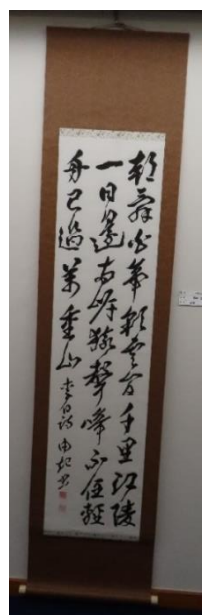 朝辞白帝彩雲間千里江陵
一日還両岸猿聲啼不住輕
舟已過萬重山 李白詩 書